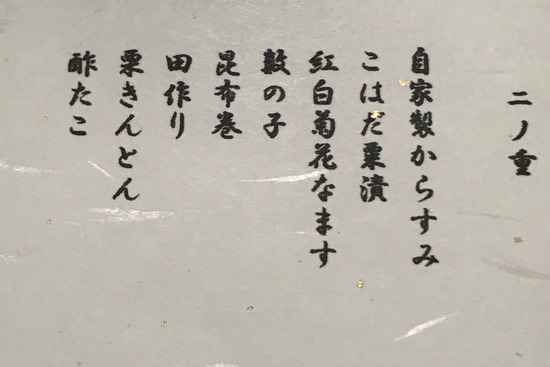 二ノ重
自家製からすみ
こはだ粟漬
紅白菊花なます
数の子
昆布巻
田作り
栗きんとん
酢たこ